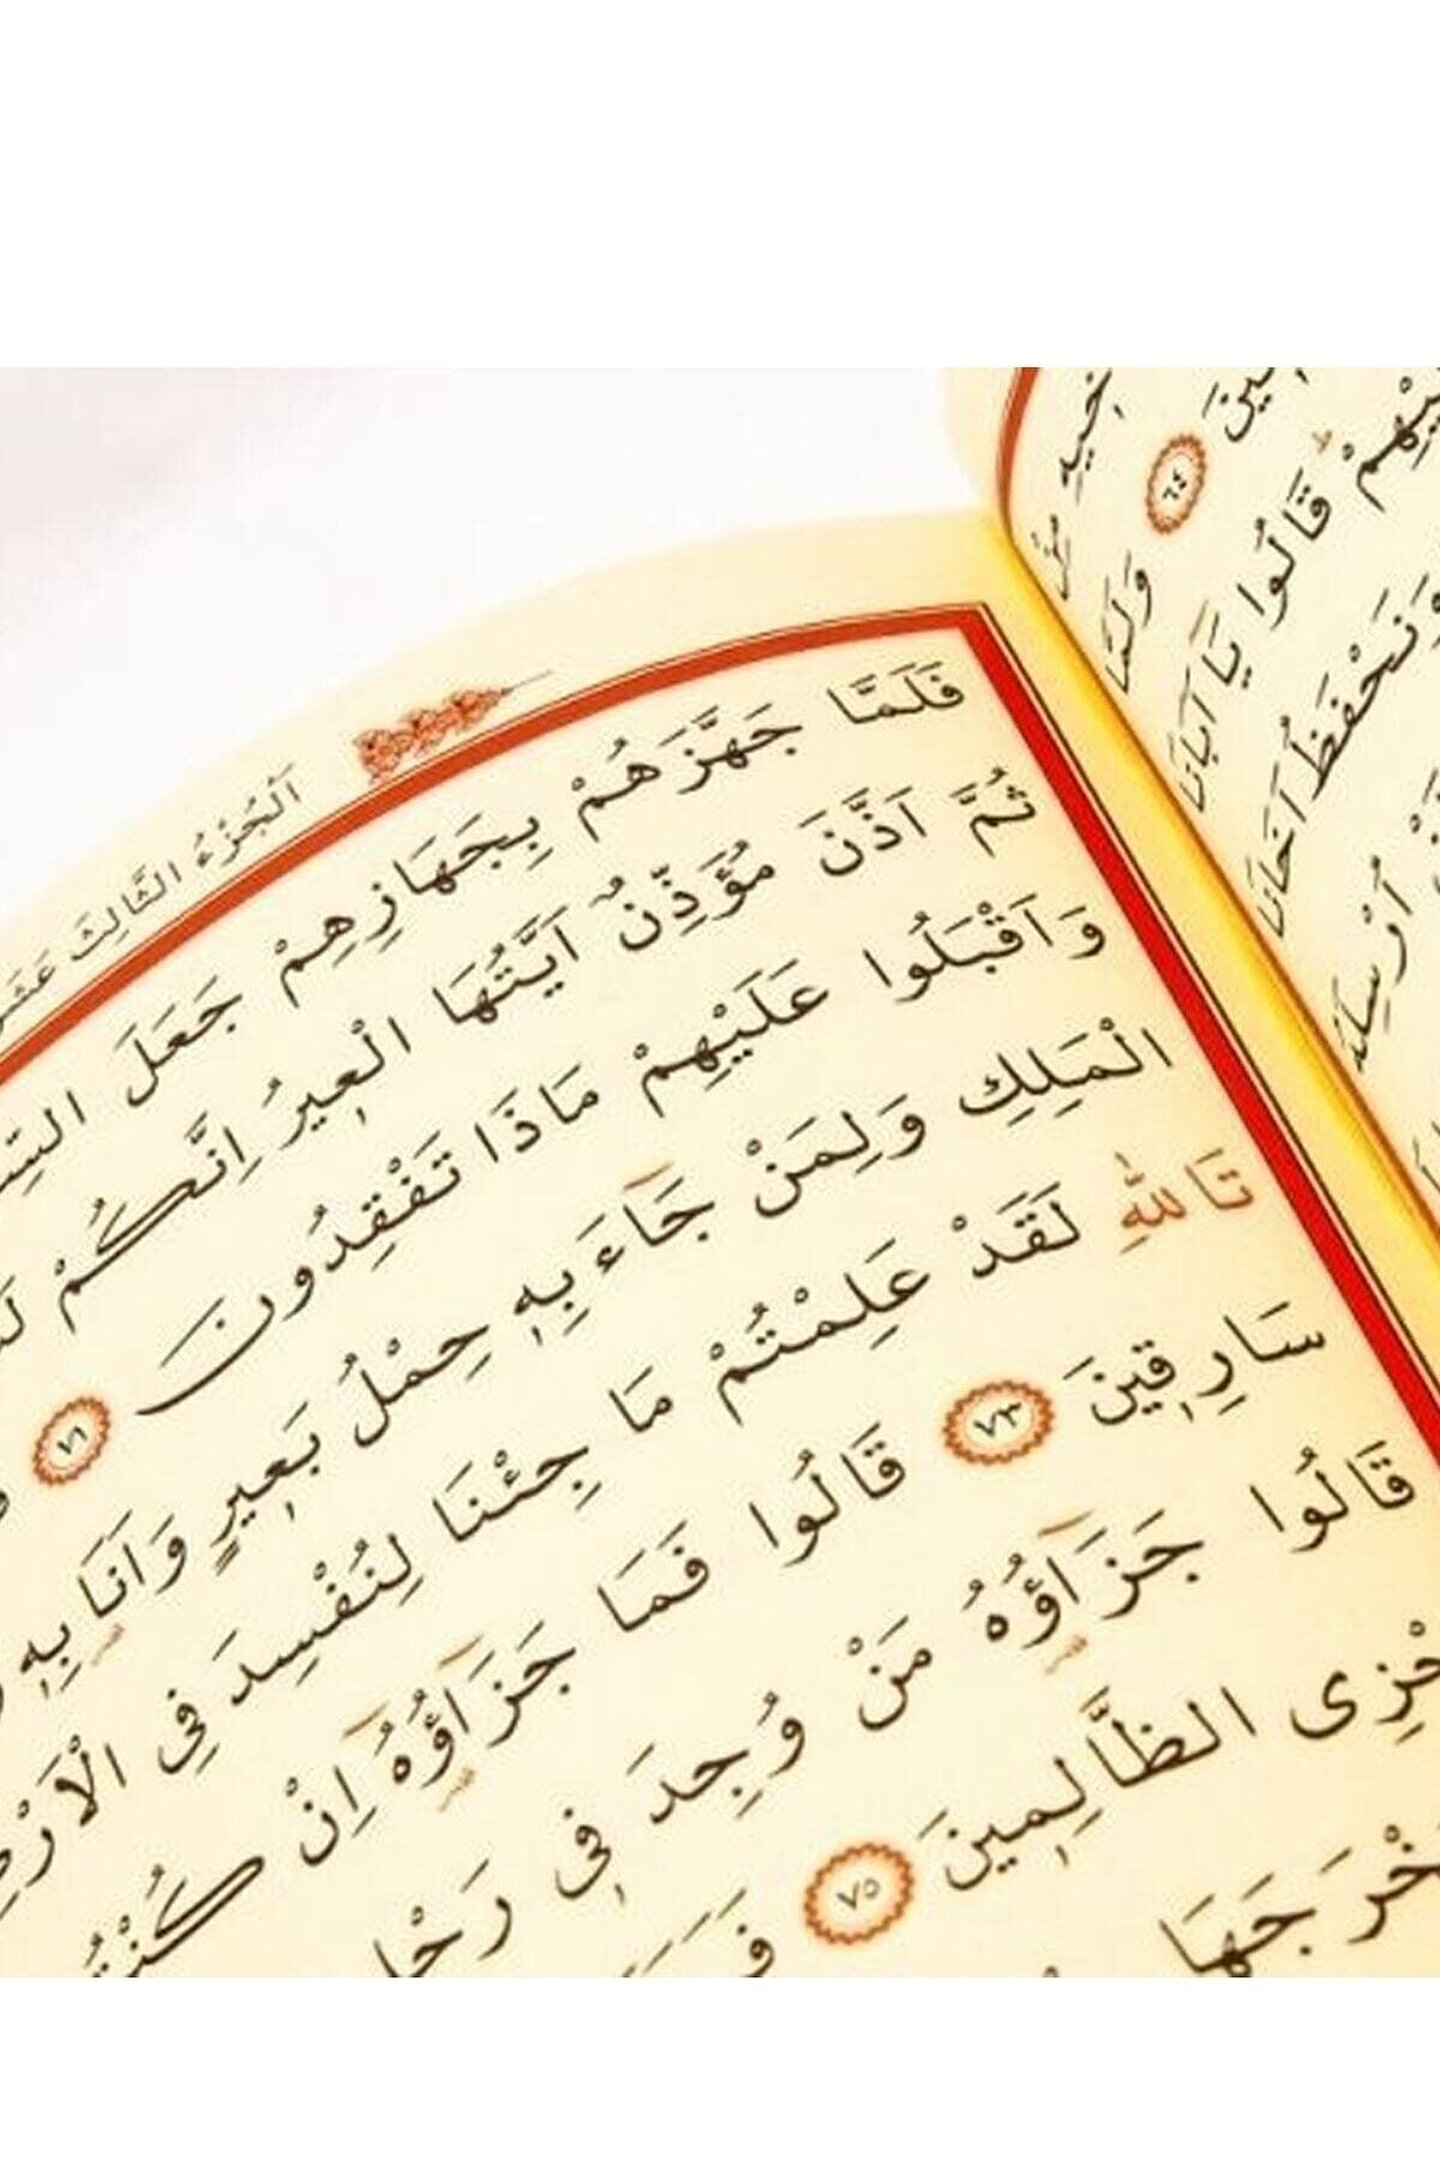 اَلْجُزْءُ الثَّالِثَ عَشَرَ
فَلَمَّا جَهَّزَهُمْ بِجَهَازِهِمْ جَعَلَ
ثُمَّ اَذَّنَ مُؤَذِّنٌ اَيَّتُهَا الْعٖيرُ اِنَّكُمْ
وَاَقْبَلُوا عَلَيْهِمْ مَاذَا تَفْقِدُونَ ٧١
الْمَلِكِ وَلِمَنْ جَٓاءَ بِهٖ حِمْلُ بَعٖيرٍ وَاَنَا بِهٖ
تَاللّٰهِ لَقَدْ عَلِمْتُمْ مَا جِئْنَا لِنُفْسِدَ فِي الْاَرْضِ
سَارِقٖينَ ٧٣ قَالُوا فَمَا جَزَٓاؤُ۬هُٓ اِنْ
قَالُوا جَزَٓاؤُ۬هُ مَنْ وُجِدَ فٖي
الظَّالِمٖينَ ٧٥
٦٤
وَلَمَّا
قَالُوا يَا اَبَانَا
وَنَحْفَظُ اَخَانَا